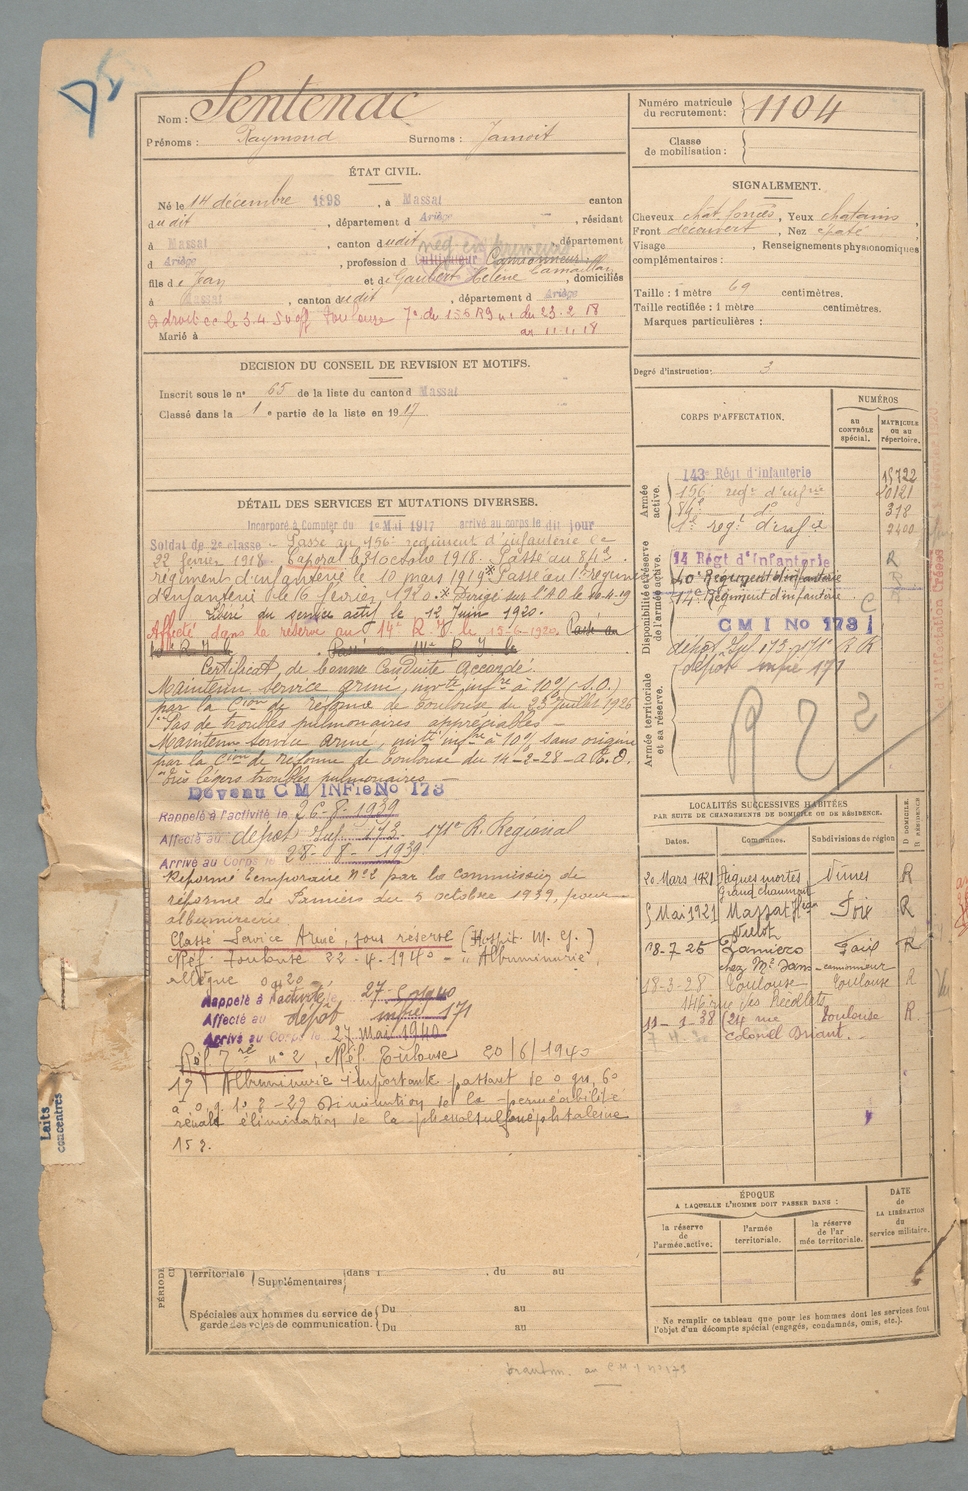 Nom : Sentenac
Prénoms : Raymond Surnoms : Jamoit
ÉTAT CIVIL.
Né le 14 décembre 1898, à Massat canton
dudit, département d Ariège, résidant
à Massat, canton dudit département
d Ariège, profession d Cultivateur Camionneur
fils de Jean et de Gaubert Hélène, domiciliés
à Massat, canton dudit, département d Ariège
Marié à
DECISION DU CONSEIL DE REVISION ET MOTIFS.
Inscrit sous le no 65 de la liste du canton d Massat
Classé dans la 1e partie de la liste en 1917
DÉTAIL DES SERVICES ET MUTATIONS DIVERSES.
Incorporé à Compter du 1er Mai 1917 arrivé au corps le dit jour
Soldat de 2e classe - Passé au 156e régiment d'infanterie le
22 février 1918. Caporal le 31 octobre 1918. Passé au 84e
régiment d'infanterie le 10 mars 1919* Passé au 1er régiment
d'infanterie le 16 février 1920. * Dirigé sur l'A.O. le 10-4-19
Libéré du service actif le 12 Juin 1920.
Affecté dans la réserve au 14e R.I. le 15-6-1920. Passé au
R.I. le Passé au 14e R.I. le
Certificat de bonne Conduite accordé.
Maintenu Service armé, invté infre à 10% (S.O.)
par la Cion de réforme de Toulouse du 23 juillet 1926
"Pas de troubles pulmonaires appréciables" -
Maintenu Service armé, invté infre à 10% sans origine
par la Cion de réforme de Toulouse du 14-2-28 -
"très légers troubles pulmonaires -
Devenu C M INFie No 173
Rappelé à l'activité le 26-8-1939
Affecté au dépôt Inf. 173. 171e R. Régional
Arrivé au Corps le 28-8-1939.
Réformé Temporaire No 2 par la commission de
réforme de Pamiers du 5 octobre 1939, pour
albuminurie
Classé Service Armé, sous réserve (Hospit. M. G.)
Réf. Toulouse 22-4-1940 - "Albuminurie,
allègue 0g20
Rappelé à l'activité le 27
Affecté au dépôt infie 171
Arrivé au Corps le 27 Mai 1940
Réf. Tre no 2, Réf. Toulouse 20/6/1940
1°) Albuminurie importante passant de 0 grs, 60
à 0, g. 1° 2 - 2°) Diminution de la perméabilité
rénale élimination de la phénolsulfonephtaleine
15 %.
territoriale Supplémentaires dans l , du au
Spéciales aux hommes du service de garde des voies de communication. Du au
Du au
Numéro matricule du recrutement : 1104
Classe de mobilisation :
SIGNALEMENT.
Cheveux chat. foncés, Yeux chatains,
Front découvert, Nez épaté
Visage , Renseignements physionomiques
complémentaires :
Taille : 1 mètre 69 centimètres.
Taille rectifiée : 1 mètre centimètres.
Marques particulières :
Degré d'instruction : 3
CORPS D'AFFECTATION.
NUMÉROS
au CONTRÔLE spécial.
MATRICULE OU AU répertoire.
Armée active.
143e Régt d'Infanterie 15722
156e regt d'infrie 10121
84e do 318
1er regt d'infie 2400
Disponibilité et réserve de l'armée active.
14 Régt d'Infanterie R
40e Régiment d'infanterie R
14e Régiment d'infanterie C
C M I No 173
dépôt Inf. 173 171e R R
dépôt infie 171
Armée territoriale et sa réserve.
LOCALITÉS SUCCESSIVES HABITÉES
PAR SUITE DE CHANGEMENTS DE DOMICILE OU DE RÉSIDENCE.
Dates. Communes. Subdivisions de région D DOMICILE. R RÉSIDENCE
20 Mars 1921 Aigues mortes Nimes R
Grand chaumont
5 Mai 1921 Massat Foix R
18-7-25 Pamiers Foix R
chez Mr Sans - camionneur
18-3-28 Toulouse Toulouse R
146 rue des Récollets
11-1-38 (24 rue Toulouse R.
Colonel Driant. -
ÉPOQUE
A LAQUELLE L'HOMME DOIT PASSER DANS :
la réserve de l'armée active.
l'armée territoriale.
la réserve de l'armée territoriale.
DATE de LA LIBÉRATION du service militaire.
Ne remplir ce tableau que pour les hommes dont les services font l'objet d'un décompte spécial (engagés, condamnés, omis, etc.).
Laits concentrés